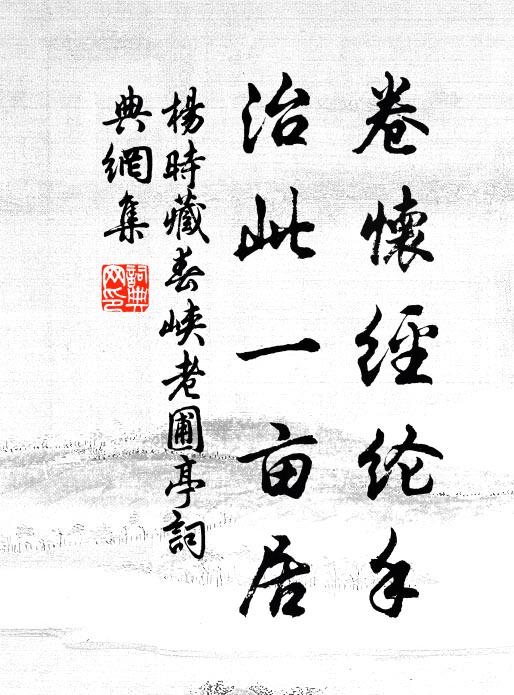 卷懷經纶手
治此一亩居
楊時藏春峽老圃亭詞
典網集
詞典
网印